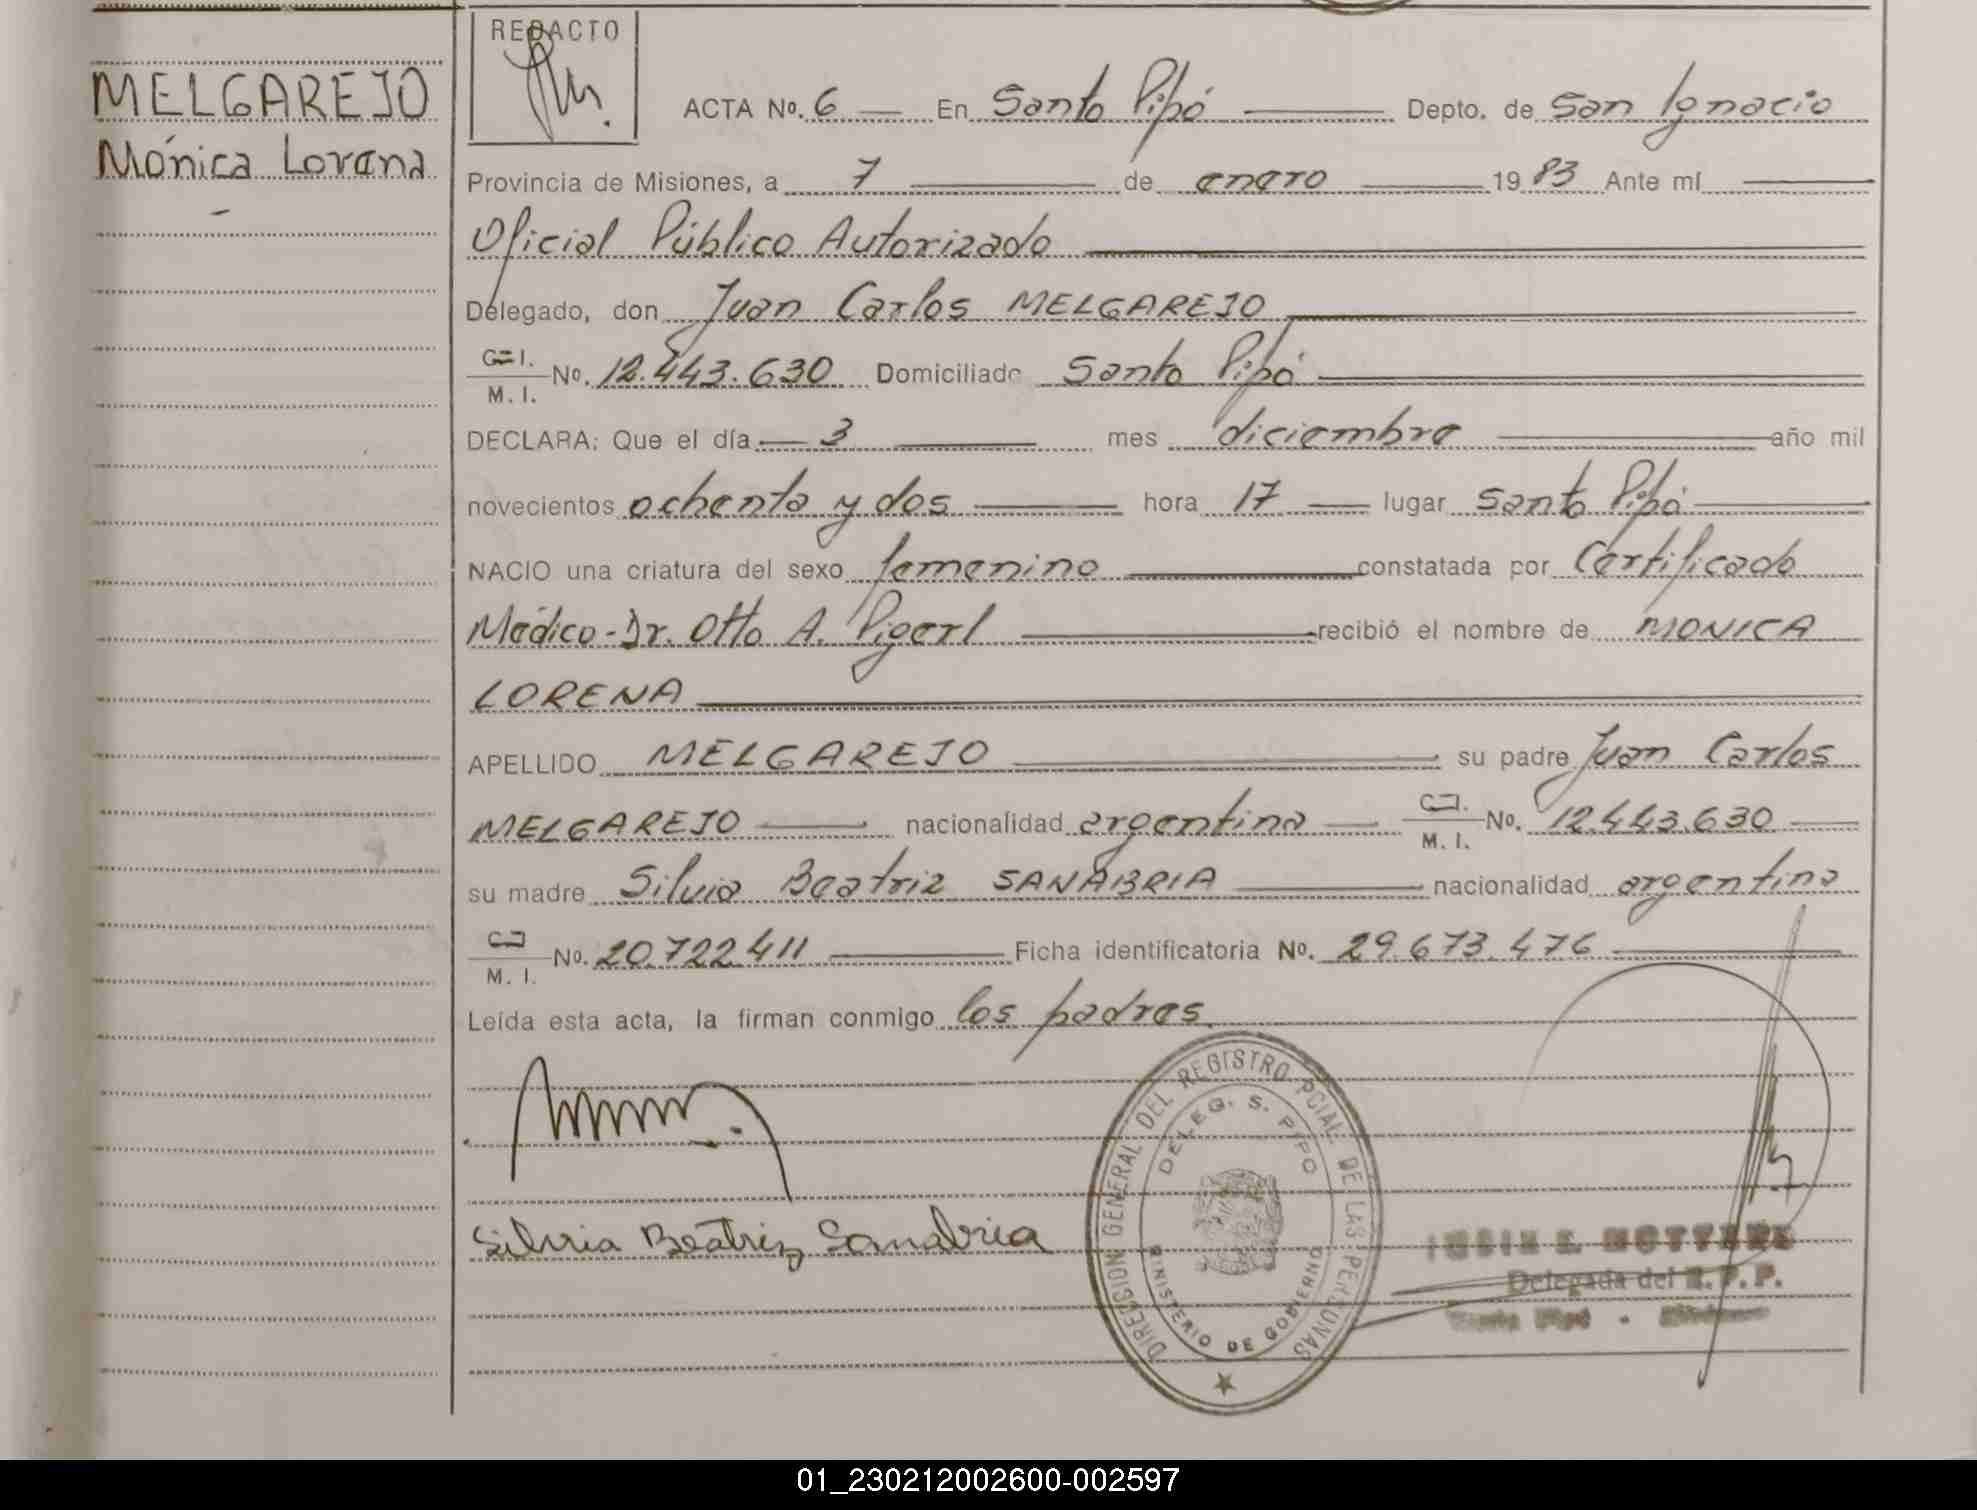 MELGAREJO
Mónica Lorena
REDACTO
ACTA No. 6 En Santo Pipó Depto. de San Ignacio
Provincia de Misiones, a 7 de enero 1983 Ante mí
Oficial Público Autorizado
Delegado, don Juan Carlos MELGAREJO
C. I.
M. I. No. 12.443.630 Domiciliado Santo Pipó
DECLARA: Que el día 3 mes diciembre año mil
novecientos ochenta y dos hora 17 lugar Santo Pipó
NACIO una criatura del sexo femenino constatada por Certificado
Médico-Dr. Otto A. Pigerl recibió el nombre de MONICA
LORENA
APELLIDO MELGAREJO su padre Juan Carlos
MELGAREJO nacionalidad argentina C. I. M. I. No. 12.443.630
su madre Silvia Beatriz SANABRIA nacionalidad argentina
C. I.
M. I. No. 20.722.411 Ficha identificatoria No. 29.673.476
Leída esta acta, la firman conmigo los padres.
Silvia Beatriz Sanabria
DIRECCION GENERAL DEL REGISTRO PCIAL. DE LAS PERSONAS
DELEG. S. PIPO
MINISTERIO DE GOBIERNO
Delegada del R. P. P.
Santo Pipó - Misiones
01_230212002600-002597